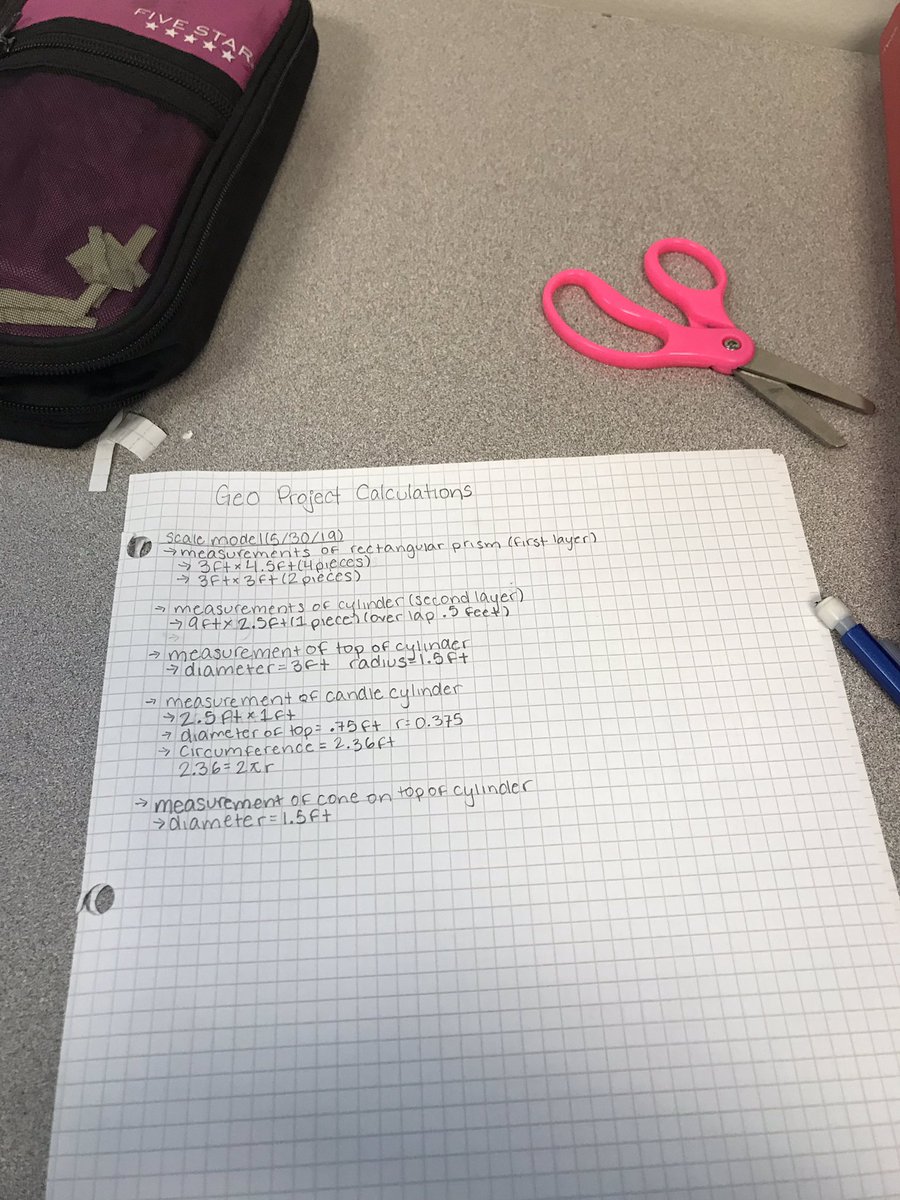 FIVE STAR
Geo Project Calculations
scale model (5/30/19)
→ measurements of rectangular prism (first layer)
→ 3ft x 4.5ft (4 pieces)
→ 3ft x 3ft (2 pieces)
→ measurements of cylinder (second layer)
→ 9ft x 2.5ft (1 piece) (over lap .5 feet)
→
→ measurement of top of cylinder
→ diameter = 3ft radius = 1.5ft
→ measurement of candle cylinder
→ 2.5ft x 1ft
→ diameter of top = .75ft r = 0.375
→ circumference = 2.36ft
2.36 = 2πr
→ measurement of cone on top of cylinder
→ diameter = 1.5ft